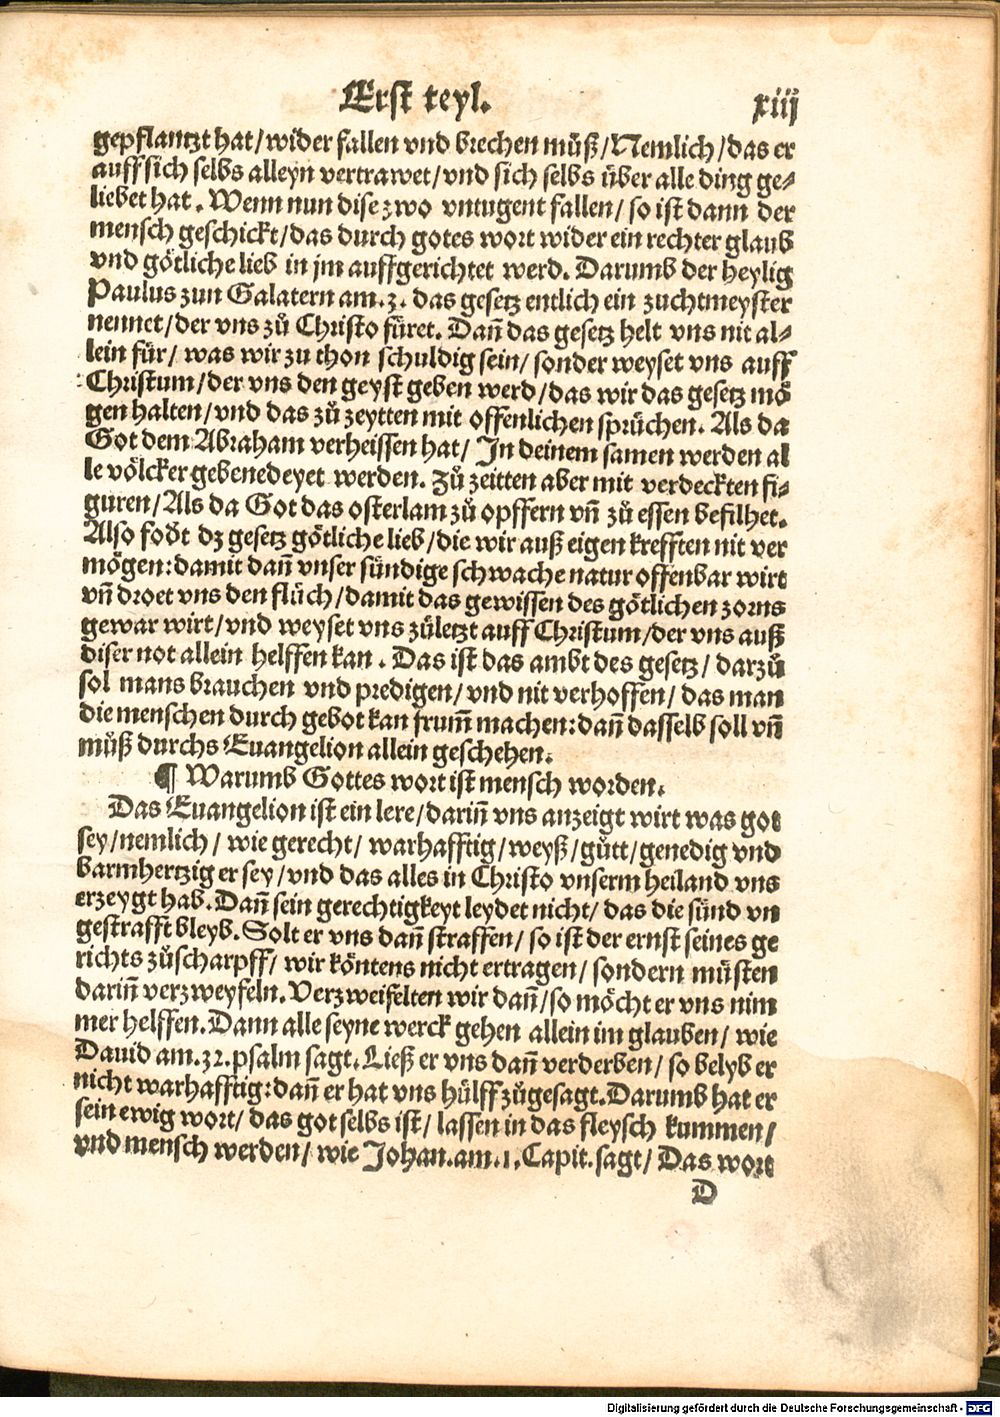 Erst teyl. xiij
gepflantzt hat/wider fallen vnd brechen müß/Nemlich/das er
auff sich selbs alleyn vertrawet/vnd sich selbs über alle ding ge⸗
liebet hat. Wenn nun dise zwo vntugent fallen/ so ist dann der
mensch geschickt/das durch gotes wort wider ein rechter glaub
vnd götliche lieb in jm auffgerichtet werd. Darumb der heylig
Paulus zun Galatern am.3. das gesetz entlich ein zuchtmeyster
nennet/der vns zů Christo füret. Dañ das gesetz helt vns nit al⸗
lein für/ was wir zu thon schuldig sein/ sonder weyset vns auff
Christum/der vns den geyst geben werd/das wir das gesetz mö
gen halten/vnd das zů zeytten mit offenlichen sprüchen. Als da
Got dem Abraham verheissen hat/ In deinem samen werden al
le völcker gebenedeyet werden. Zů zeitten aber mit verdeckten fi⸗
guren/Als da Got das osterlam zů opffern vñ zů essen befilhet.
Also fodt dz gesetz götliche lieb/die wir auß eigen krefften nit ver
mögen:damit dañ vnser sündige schwache natur offenbar wirt
vñ droet vns den flůch/damit das gewissen des götlichen zorns
gewar wirt/vnd weyset vns zůletzt auff Christum/der vns auß
diser not allein helffen kan. Das ist das ambt des gesetz/ darzů
sol mans brauchen vnd predigen/ vnd nit verhoffen/ das man
die menschen durch gebot kan frum̃ machen:dañ dasselb soll vñ
můß durchs Euangelion allein geschehen.
¶ Warumb Gottes wort ist mensch worden.
Das Euangelion ist ein lere/dariñ vns anzeigt wirt was got
sey/nemlich/ wie gerecht/ warhafftig/weyß/gůtt/genedig vnd
barmhertzig er sey/vnd das alles in Christo vnserm heiland vns
erzeygt hab. Dañ sein gerechtigkeyt leydet nicht/ das die sünd vn
gestrafft bleyb. Solt er vns dañ straffen/ so ist der ernst seines ge
richts zůscharpff/ wir köntens nicht ertragen/ sondern müsten
dariñ verzweyfeln. Verzweifelten wir dañ/so möcht er vns nim
mer helffen. Dann alle seyne werck gehen allein im glauben/ wie
Dauid am.32.psalm sagt. Ließ er vns dañ verderben/ so belyb er
nicht warhafftig:dañ er hat vns hülff zůgesagt. Darumb hat er
sein ewig wort/ das got selbs ist/ lassen in das fleysch kummen/
vnd mensch werden/ wie Johan.am.1.Capit.sagt/ Das wort
D
Digitalisierung gefördert durch die Deutsche Forschungsgemeinschaft - DFG